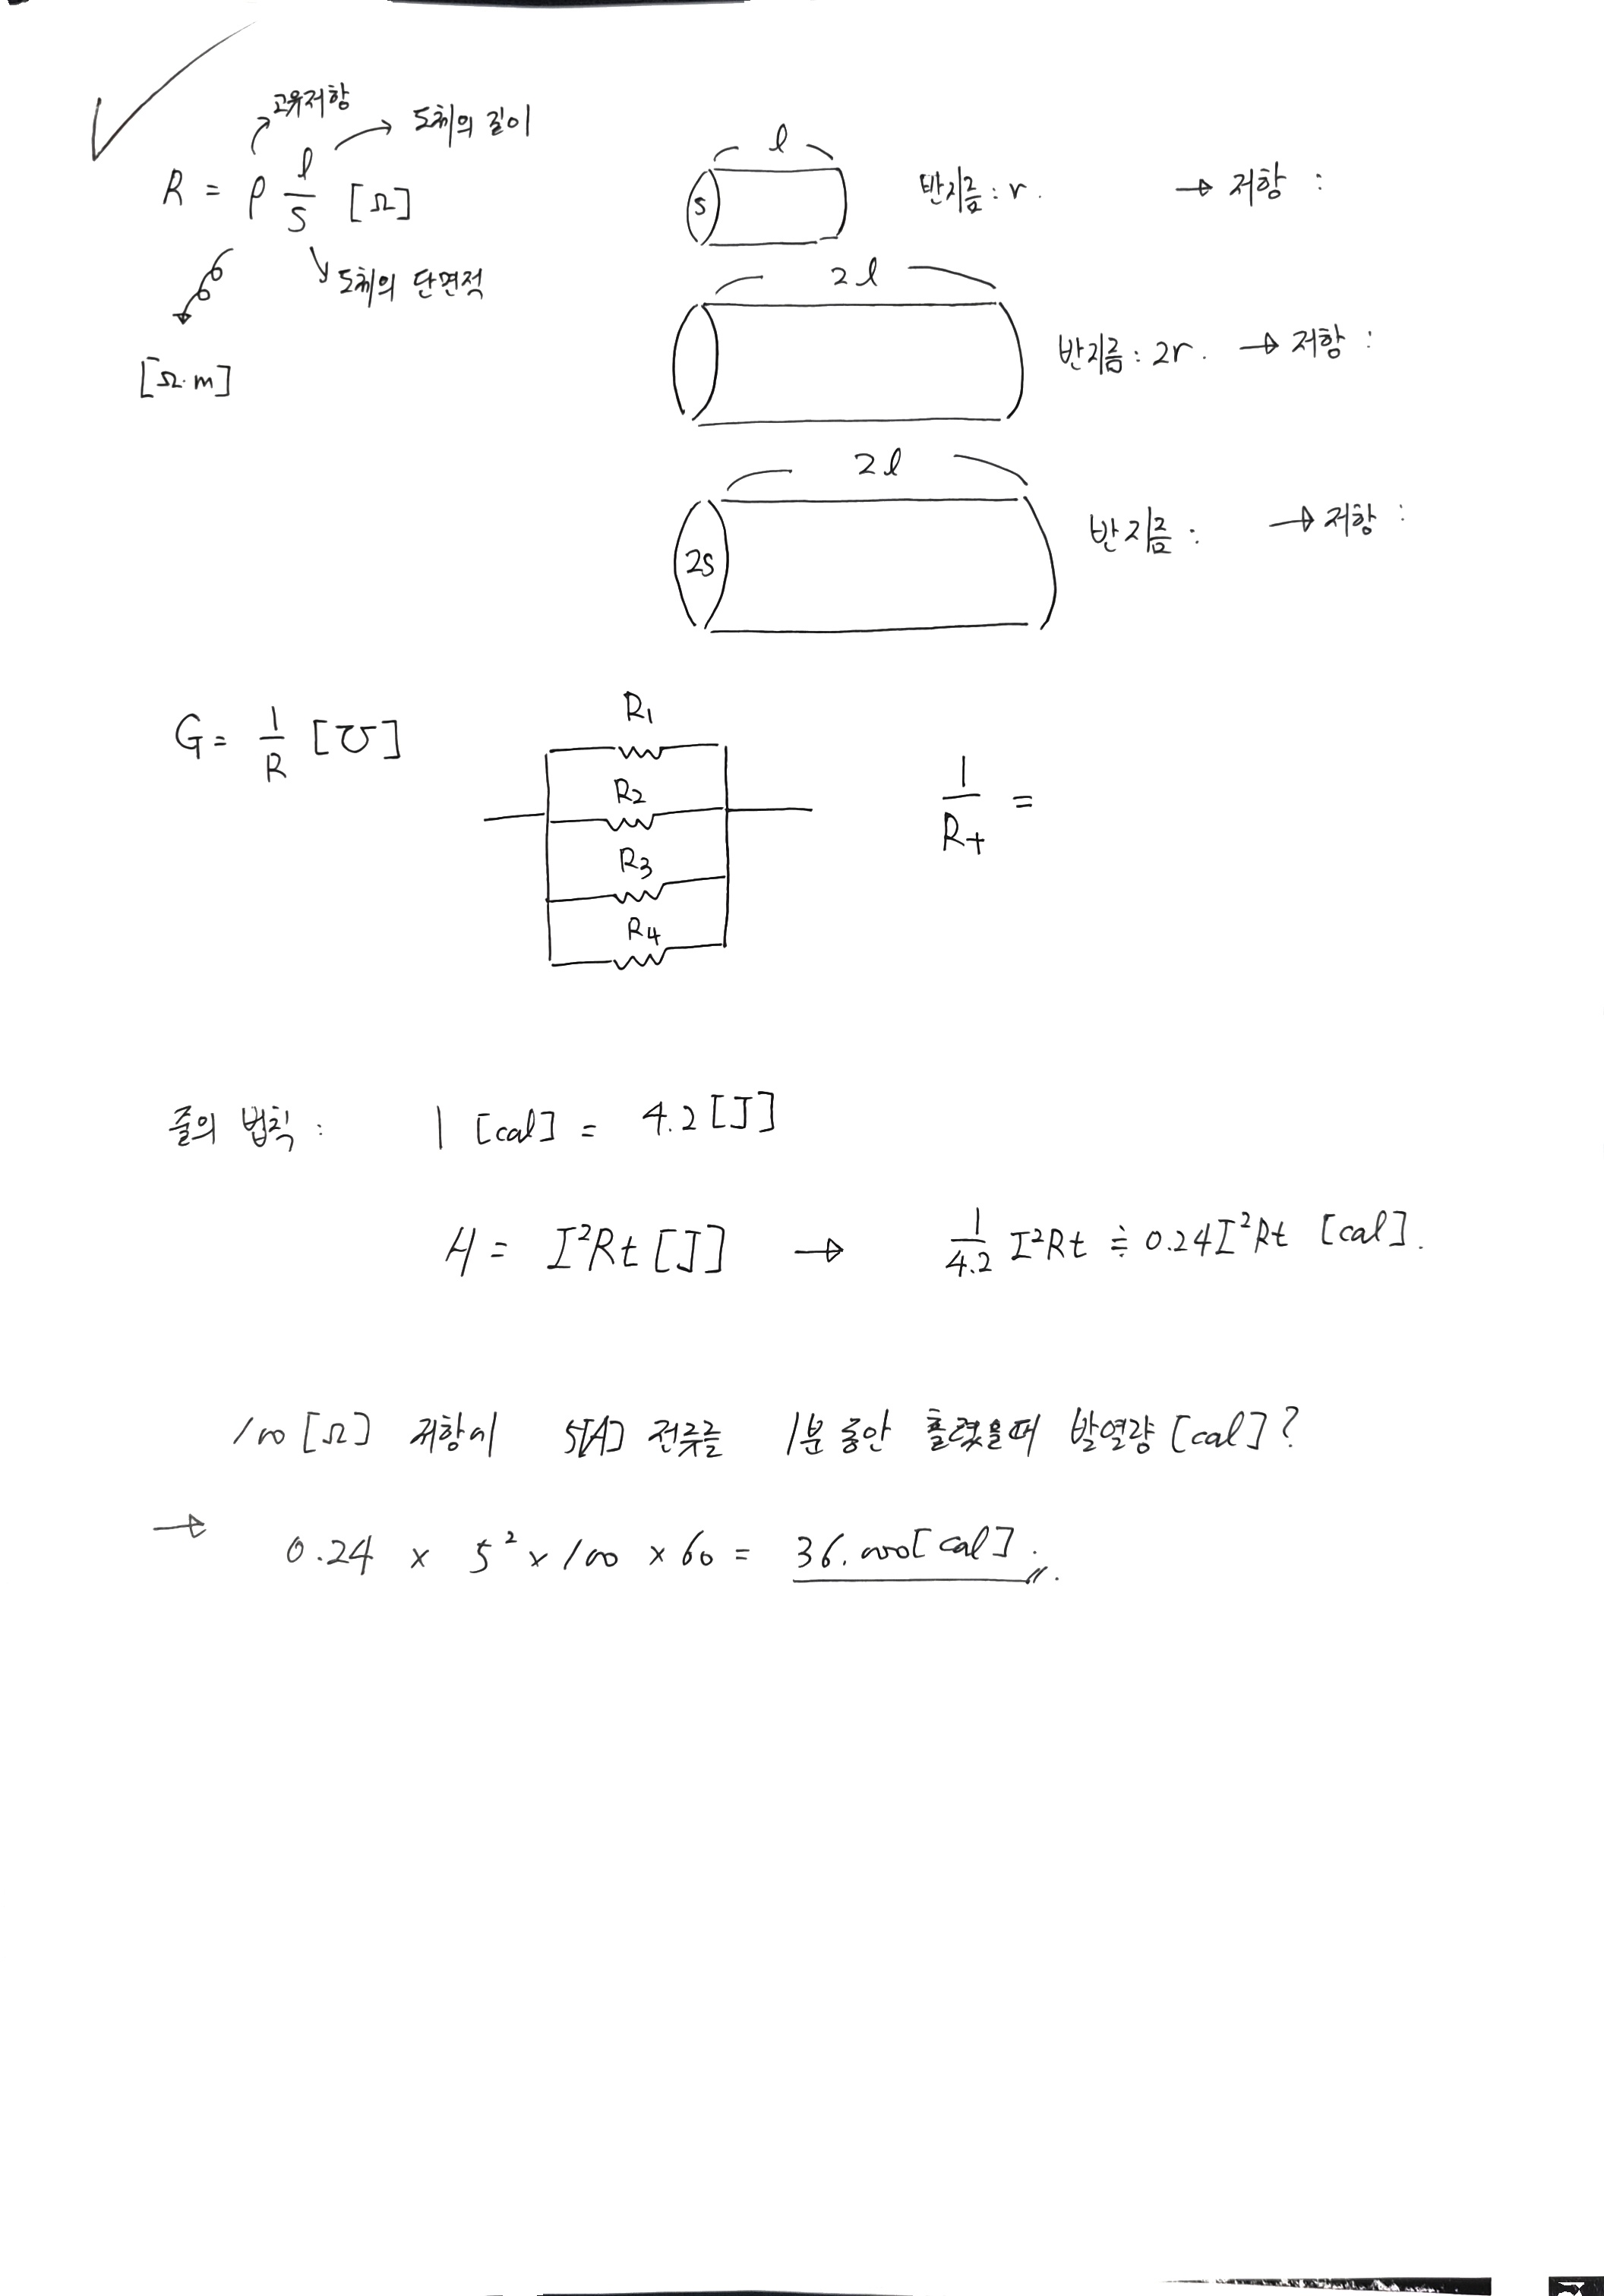 고유저항
도체의 길이
R = ρ l/S [Ω]
도체의 단면적
[Ω·m]
l
S
반지름 : r. → 저항 :
2l
반지름 : 2r. → 저항 :
2l
2S
반지름 : → 저항 :
G = 1/R [℧]
R1
R2
R3
R4
1/Rt =
줄의 법칙 : 1 [cal] = 4.2 [J]
H = I²Rt [J] → 1/4.2 I²Rt ≒ 0.24I²Rt [cal].
100 [Ω] 저항에 5[A] 전류를 1분 동안 흘렸을때 발열량 [cal]?
→ 0.24 × 5² × 100 × 60 = 36.000[cal].